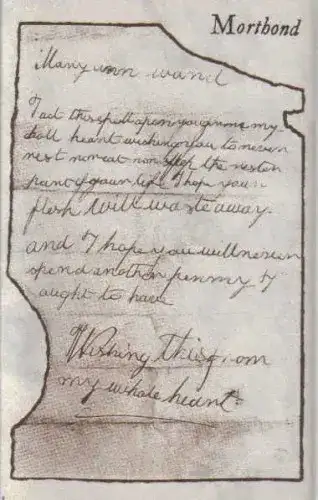 Morthond
Mary ann wand
I act this spell upon you from my
holl heart wishing you to never
rest nor eat nor sleep the resten
part of your life I hope your
flesh will waste away
and I hope you will never
spend another penny I
aught to have
Wishing this from
my whole heart